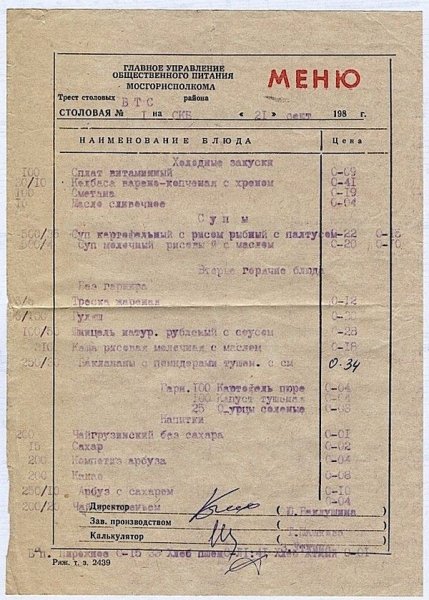 ГЛАВНОЕ УПРАВЛЕНИЕ
ОБЩЕСТВЕННОГО ПИТАНИЯ
МОСГОРИСПОЛКОМА
МЕНЮ
Трест столовых БТС района
СТОЛОВАЯ № I на СКБ « 21 » сент 198 г.
НАИМЕНОВАНИЕ БЛЮДА Цена
Холодные закуски
100 Сплат витаминный 0-09
50/10 Колбаса варено-копченая с хреном 0-41
Сметана 0-19
10 Масло сливочнее 0-04
Супы
Суп картофельный с рисом рыбный с палтусом-22
Суп молочный рисовый с маслом 0-20
Вторые горячие блюда
Без гарнира
Треска жареная 0-12
Гуляш
Шницель натур. рубленый с соусом -28
Каша рисовая молочная с маслом 0-18
250/30 Баклажаны с помидорами тушен. с см 0-34
Гарн. 100 Картофель пюре 0-04
100 Капуст тушеная 0-04
25 Огурцы соленые
Напитки
200 Чайгрузинский без сахара 0-01
15 Сахар
200 Компотиз арбуза 0-04
200 Какао
250/10 Арбуз с сахаром 0-10
200/20 0-04
Директор
Зав. производством
Калькулятор
Пирожнее 0-15 Хлеб 0-01
Риж. т. з. 2439